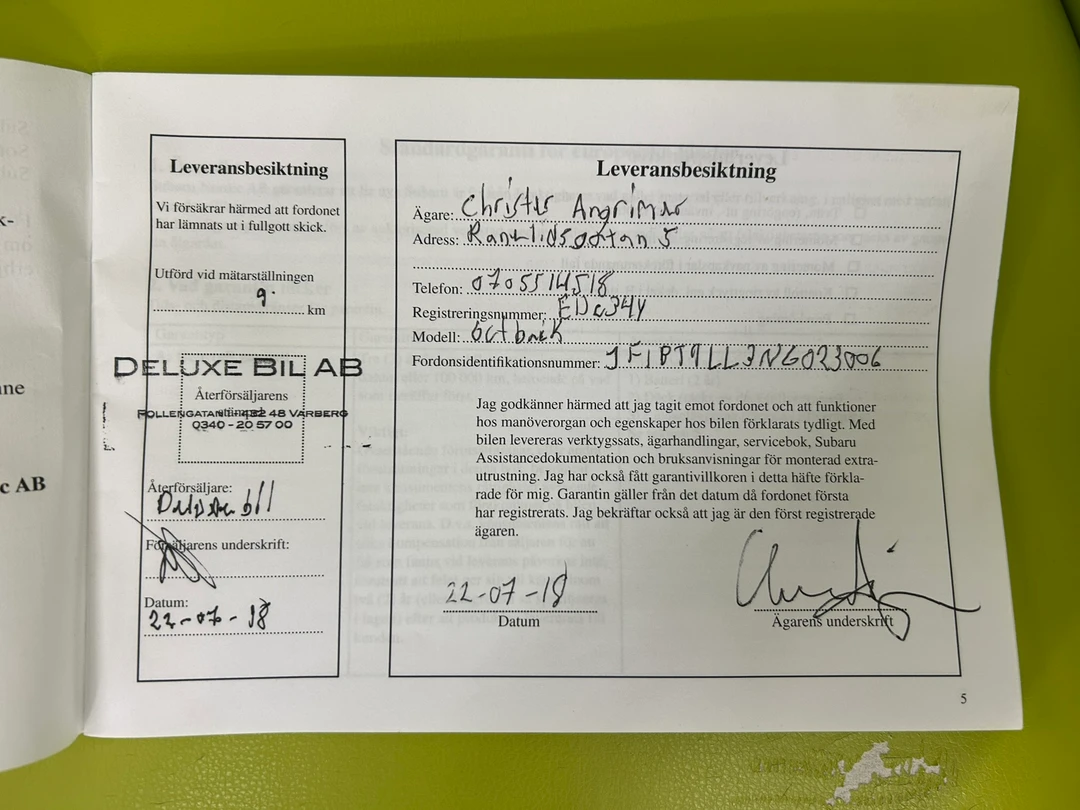 k-
ne
c AB
Leveransbesiktning
Vi försäkrar härmed att fordonet
har lämnats ut i fullgott skick.
Utförd vid mätarställningen
9. km
DELUXE BIL AB
Återförsäljarens
432 48 VARBERG
0340 - 20 57 00
Återförsäljare:
Försäljarens underskrift:
Datum:
22-07-18
Leveransbesiktning
Ägare: Christer
Adress: 5
Telefon: 0705514518
Registreringsnummer:
Modell:
Fordonsidentifikationsnummer:
Jag godkänner härmed att jag tagit emot fordonet och att funktioner
hos manöverorgan och egenskaper hos bilen förklarats tydligt. Med
bilen levereras verktygssats, ägarhandlingar, servicebok, Subaru
Assistancedokumentation och bruksanvisningar för monterad extra-
utrustning. Jag har också fått garantivillkoren i detta häfte förkla-
rade för mig. Garantin gäller från det datum då fordonet första
har registrerats. Jag bekräftar också att jag är den först registrerade
ägaren.
22-07-18
Datum
Ägarens underskrift
5